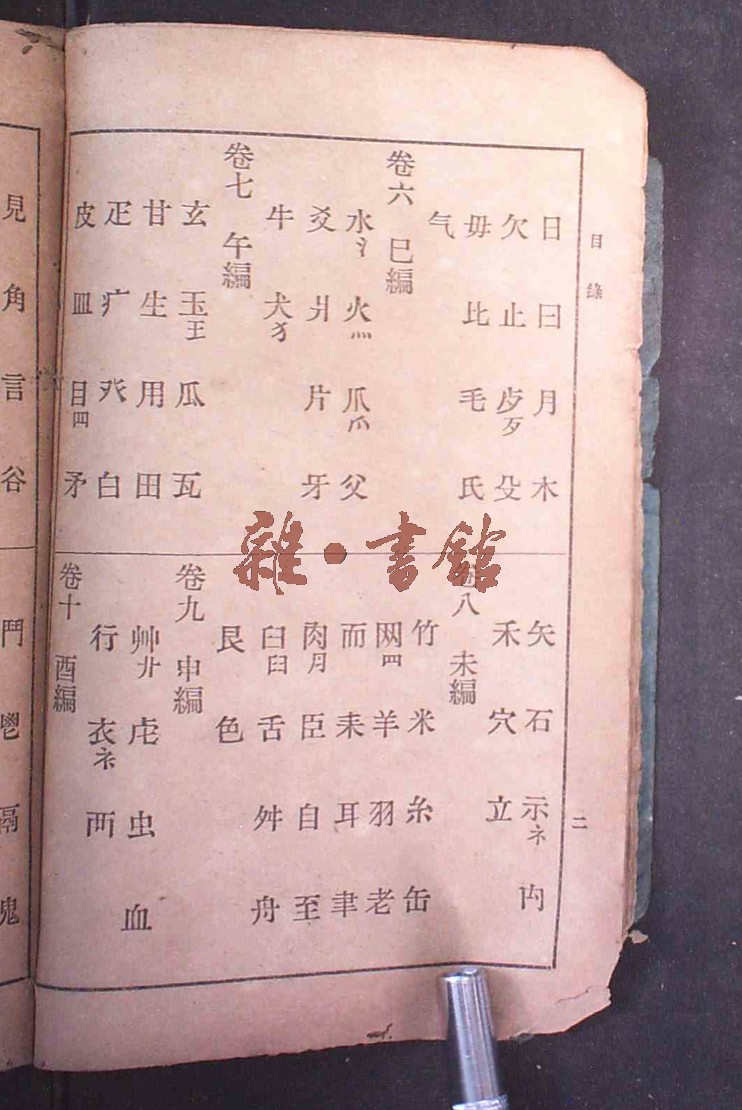 目錄
二
日 曰 月 木
欠 止 歹歺 殳
毋 比 毛 氏
气
卷六 巳編
水氵 火灬 爪爫 父
爻 爿 片 牙
牛 犬犭
卷七 午編
玄 玉王 瓜 瓦
甘 生 用 田
疋 疒 癶 白
皮 皿 目罒 矛
矢 石 示礻 禸
禾 穴 立
卷八 未編
竹 米 糸 缶
网罒 羊 羽 老
而 耒 耳 聿
肉月 臣 自 至
臼 舌 舛 舟
艮 色
卷九 申編
艸廾 虍 虫 血
行 衣衤 襾
卷十 酉編
見 角 言 谷
鬥 鬯 鬲 鬼
雜·書館